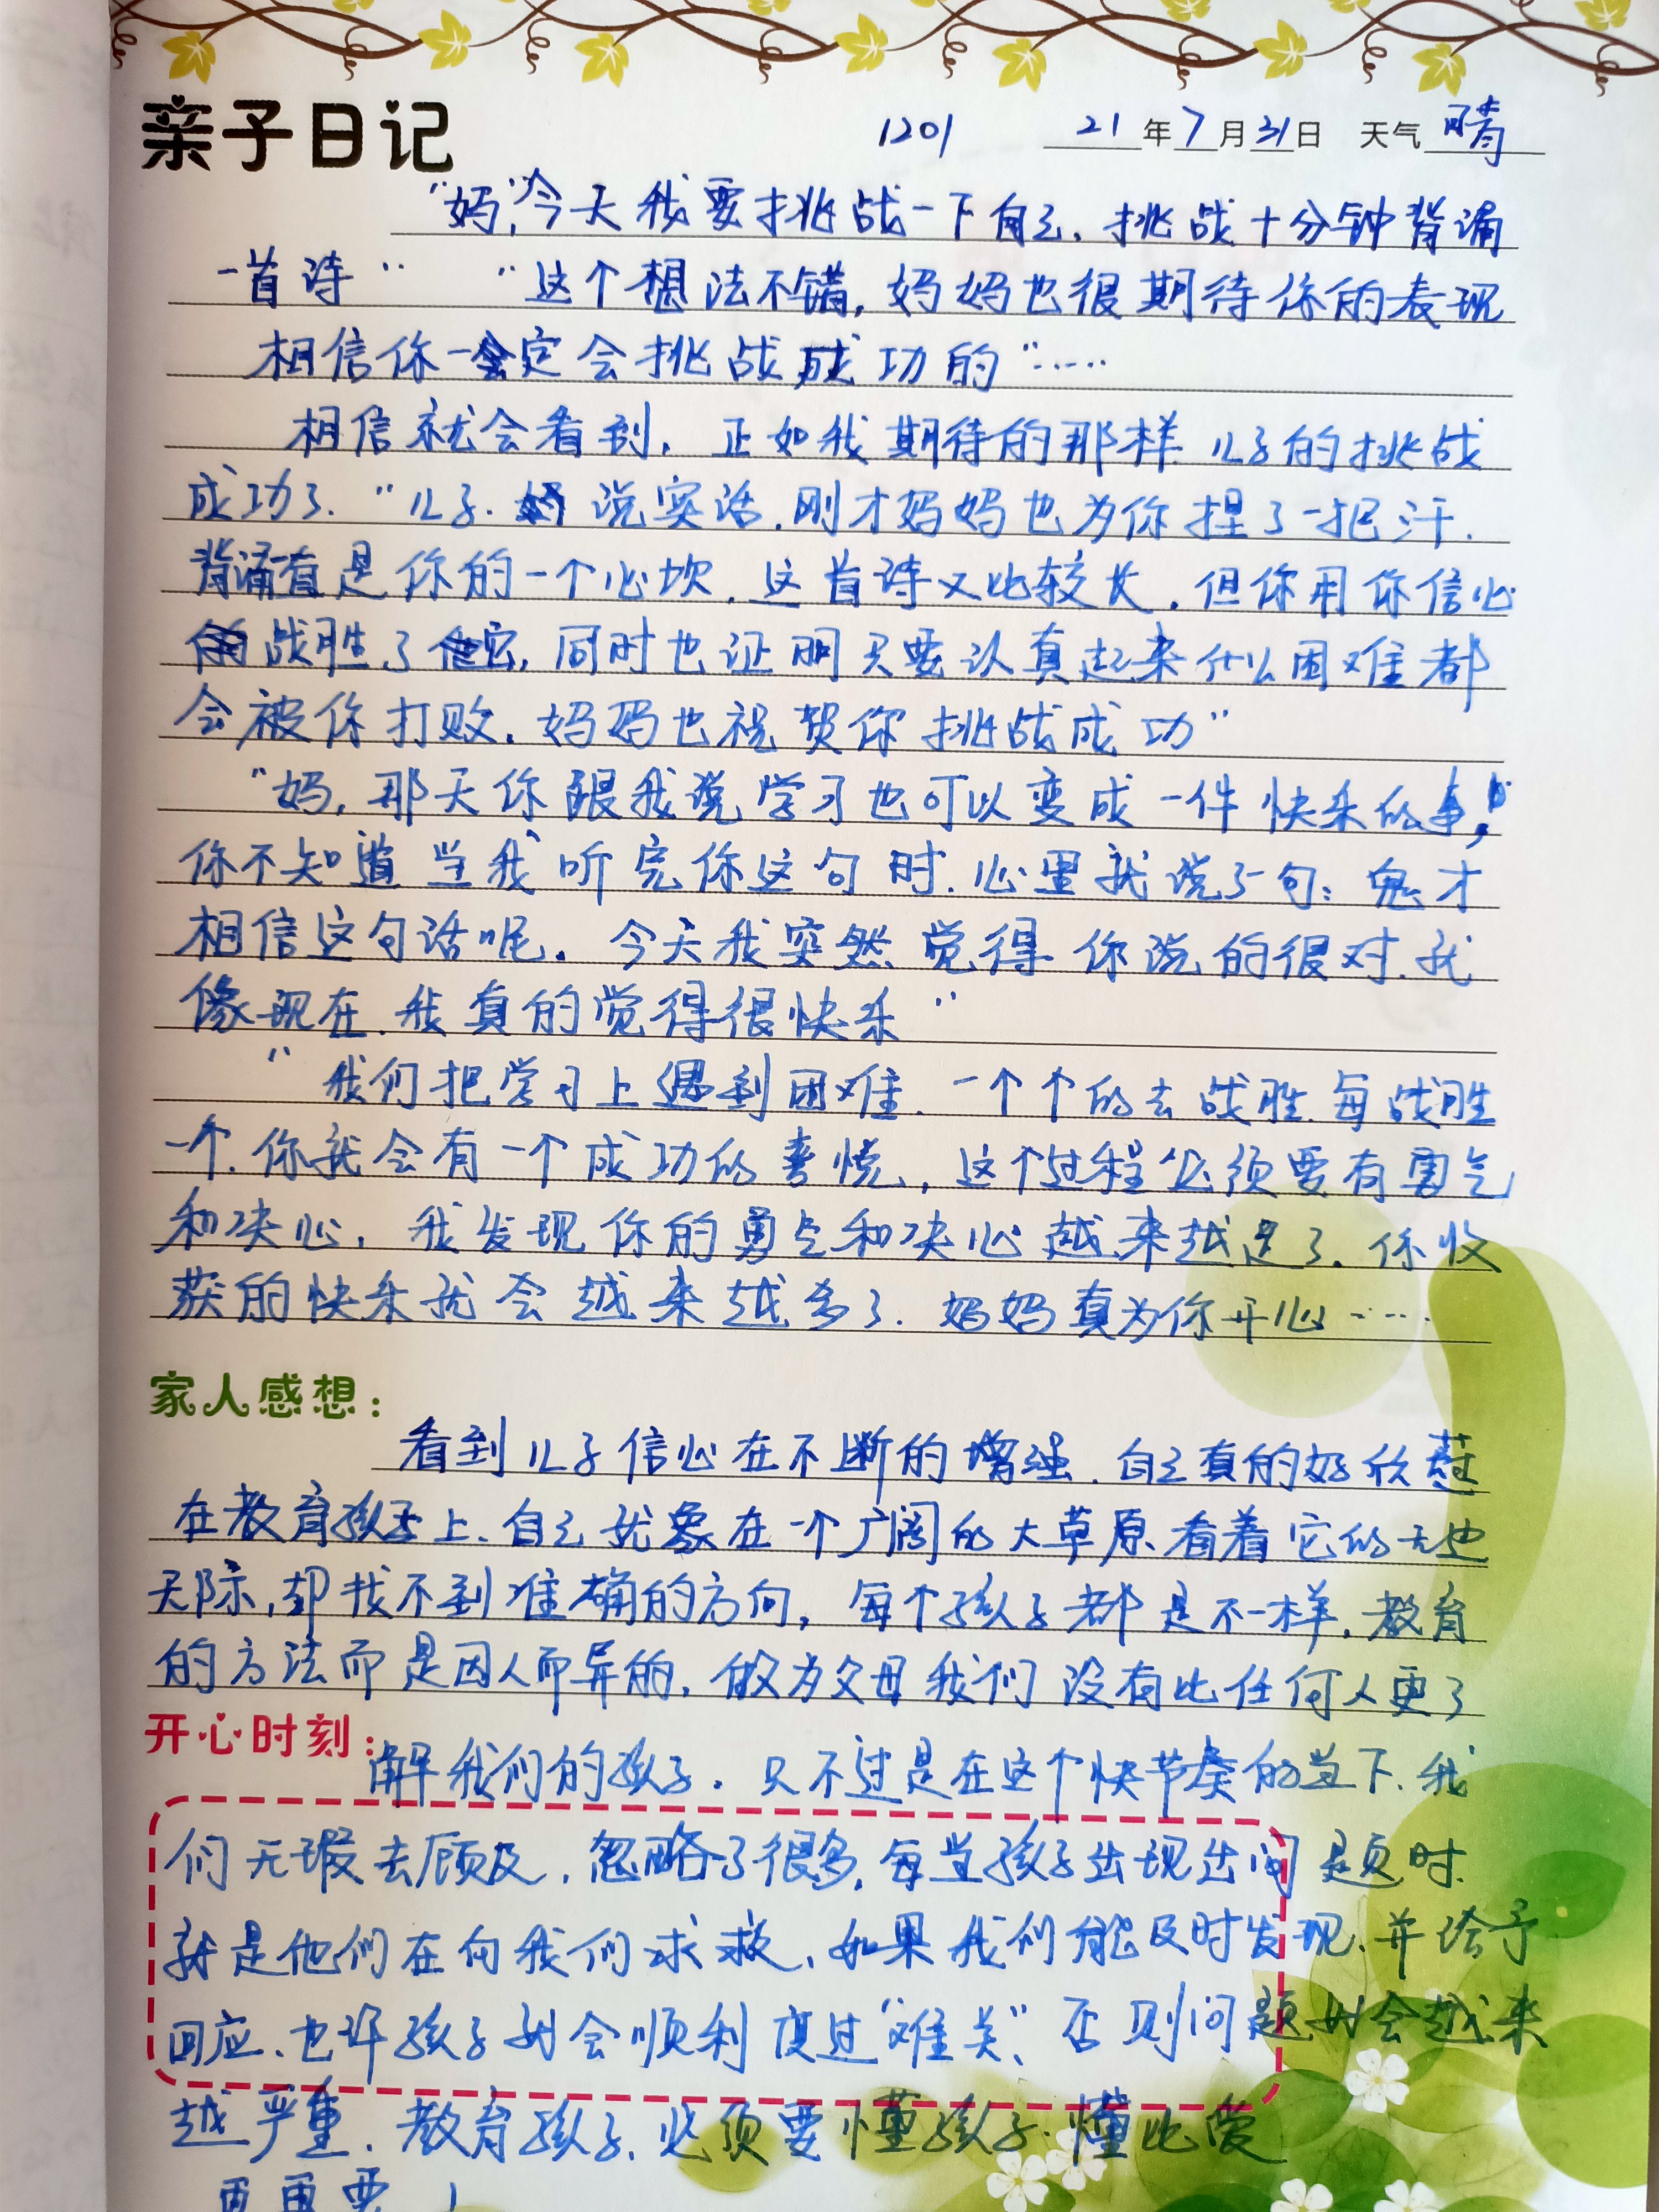 亲子日记 1201 21年7月31日 天气晴
"妈,"今天我要挑战一下自己,挑战十分钟背诵
一首诗" "这个想法不错,妈妈也很期待你的表现
相信你一定会挑战成功的"……
相信就会看到,正如我期待的那样,儿子的挑战
成功了."儿子.说实话,刚才妈妈也为你捏了一把汗.
背诵直是你的一个心坎,这首诗又比较长,但你用你信心
战胜了它,同时也证明只要认真起来什么困难都
会被你打败.妈妈也祝贺你挑战成功"
"妈,那天你跟我说学习也可以变成一件快乐的事,
你不知道当我听完你这句时.心里就说了一句:鬼才
相信这句话呢。今天我突然觉得你说的很对.就
像现在.我真的觉得很快乐"
"我们把学习上遇到困难.一个个的去战胜.每战胜
一个.你就会有一个成功的喜悦,这个过程必须要有勇气
和决心,我发现你的勇气和决心越来越足了.你收
获的快乐就会越来越多了.妈妈真为你开心……
家人感想:
看到儿子信心在不断的增强.自己真的好欣慰
在教育孩子上.自己就象在一个广阔的大草原.看着它的无边
无际,却找不到准确的方向,每个孩子都是不一样.教育
的方法而是因人而异的.做为父母我们没有比任何人更了
开心时刻:
解我们的孩子.只不过是在这个快节奏的当下.我
们无暇去顾及,忽略了很多,每当孩子出现出问题时.
就是他们在向我们求救、如果我们能及时发现.并给予
回应、也许孩子就会顺利度过"难关"、否则问题就会越来
越严重.教育孩子.必须要懂孩子.懂比爱
更重要!